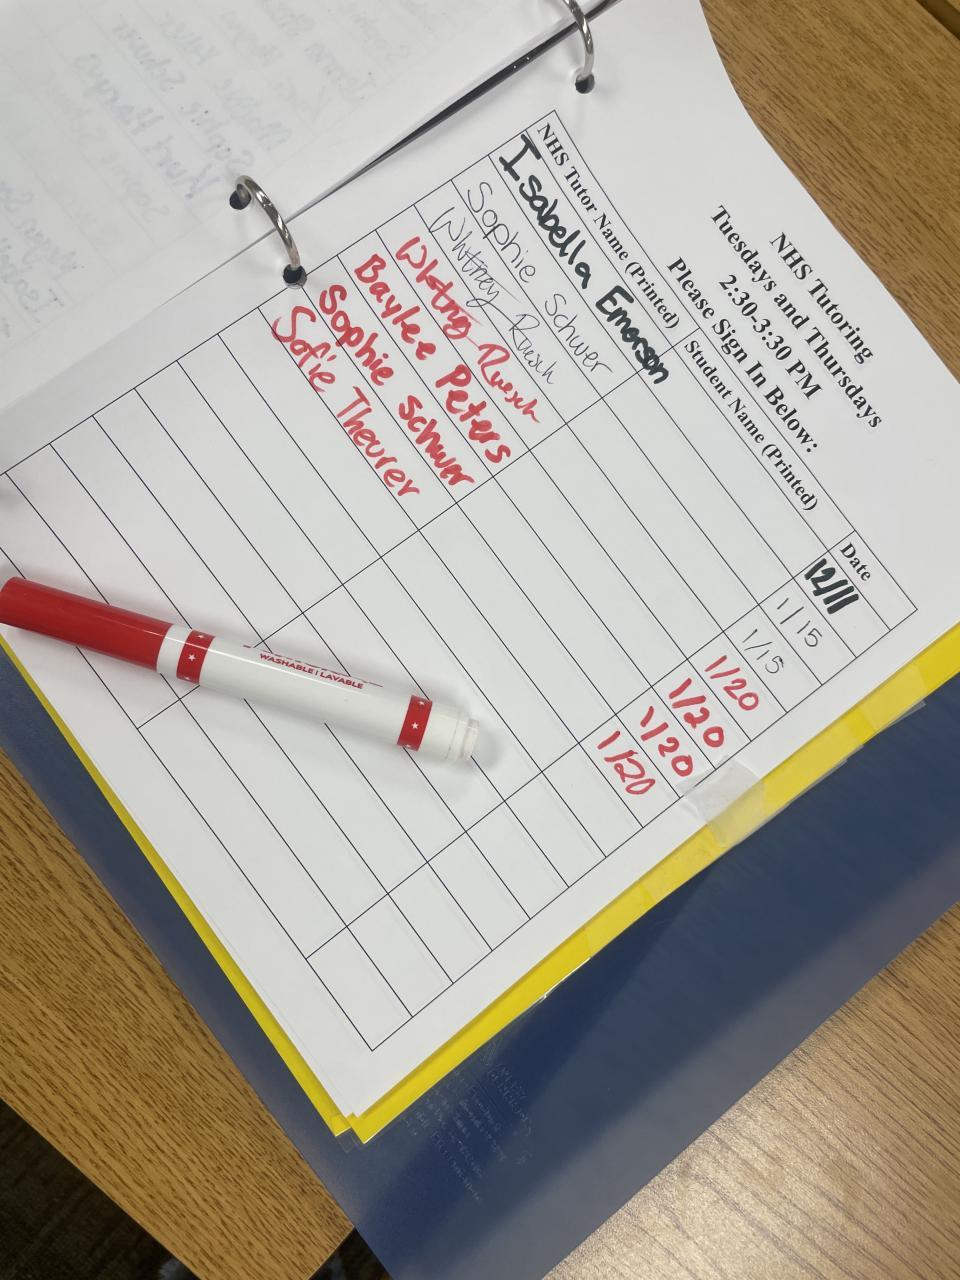 NHS Tutoring
Tuesdays and Thursdays
2:30-3:30 PM
Please Sign In Below:
NHS Tutor Name (Printed) Student Name (Printed) Date
Isabella Emerson 12/11
Sophie Schwer 1/15
Whitney Ruesch 1/15
Whitney Ruesch 1/20
Baylee Peters 1/20
Sophie Schwer 1/20
Sofie Theurer 1/20
WASHABLE | LAVABLE